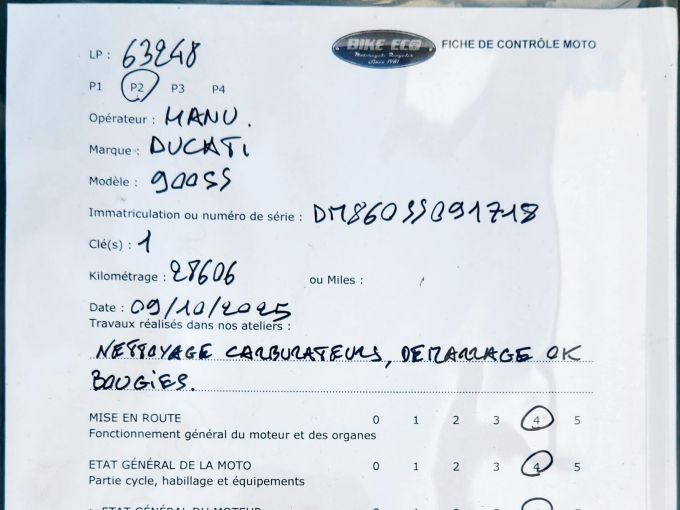 LP : 63248
BIKE ECO
Motorcycle Recycler
Since 1981
FICHE DE CONTRÔLE MOTO
P1 P2 P3 P4
Opérateur : MANU.
Marque : DUCATI
Modèle : 900SS
Immatriculation ou numéro de série : DM860SS091718
Clé(s) : 1
Kilométrage : 27606 ou Miles :
Date : 09/10/2025
Travaux réalisés dans nos ateliers :
NETTOYAGE CARBURATEURS, DEMARRAGE OK
BOUGIES.
MISE EN ROUTE 0 1 2 3 4 5
Fonctionnement général du moteur et des organes
ETAT GÉNÉRAL DE LA MOTO 0 1 2 3 4 5
Partie cycle, habillage et équipements
ETAT GÉNÉRAL DU MOTEUR